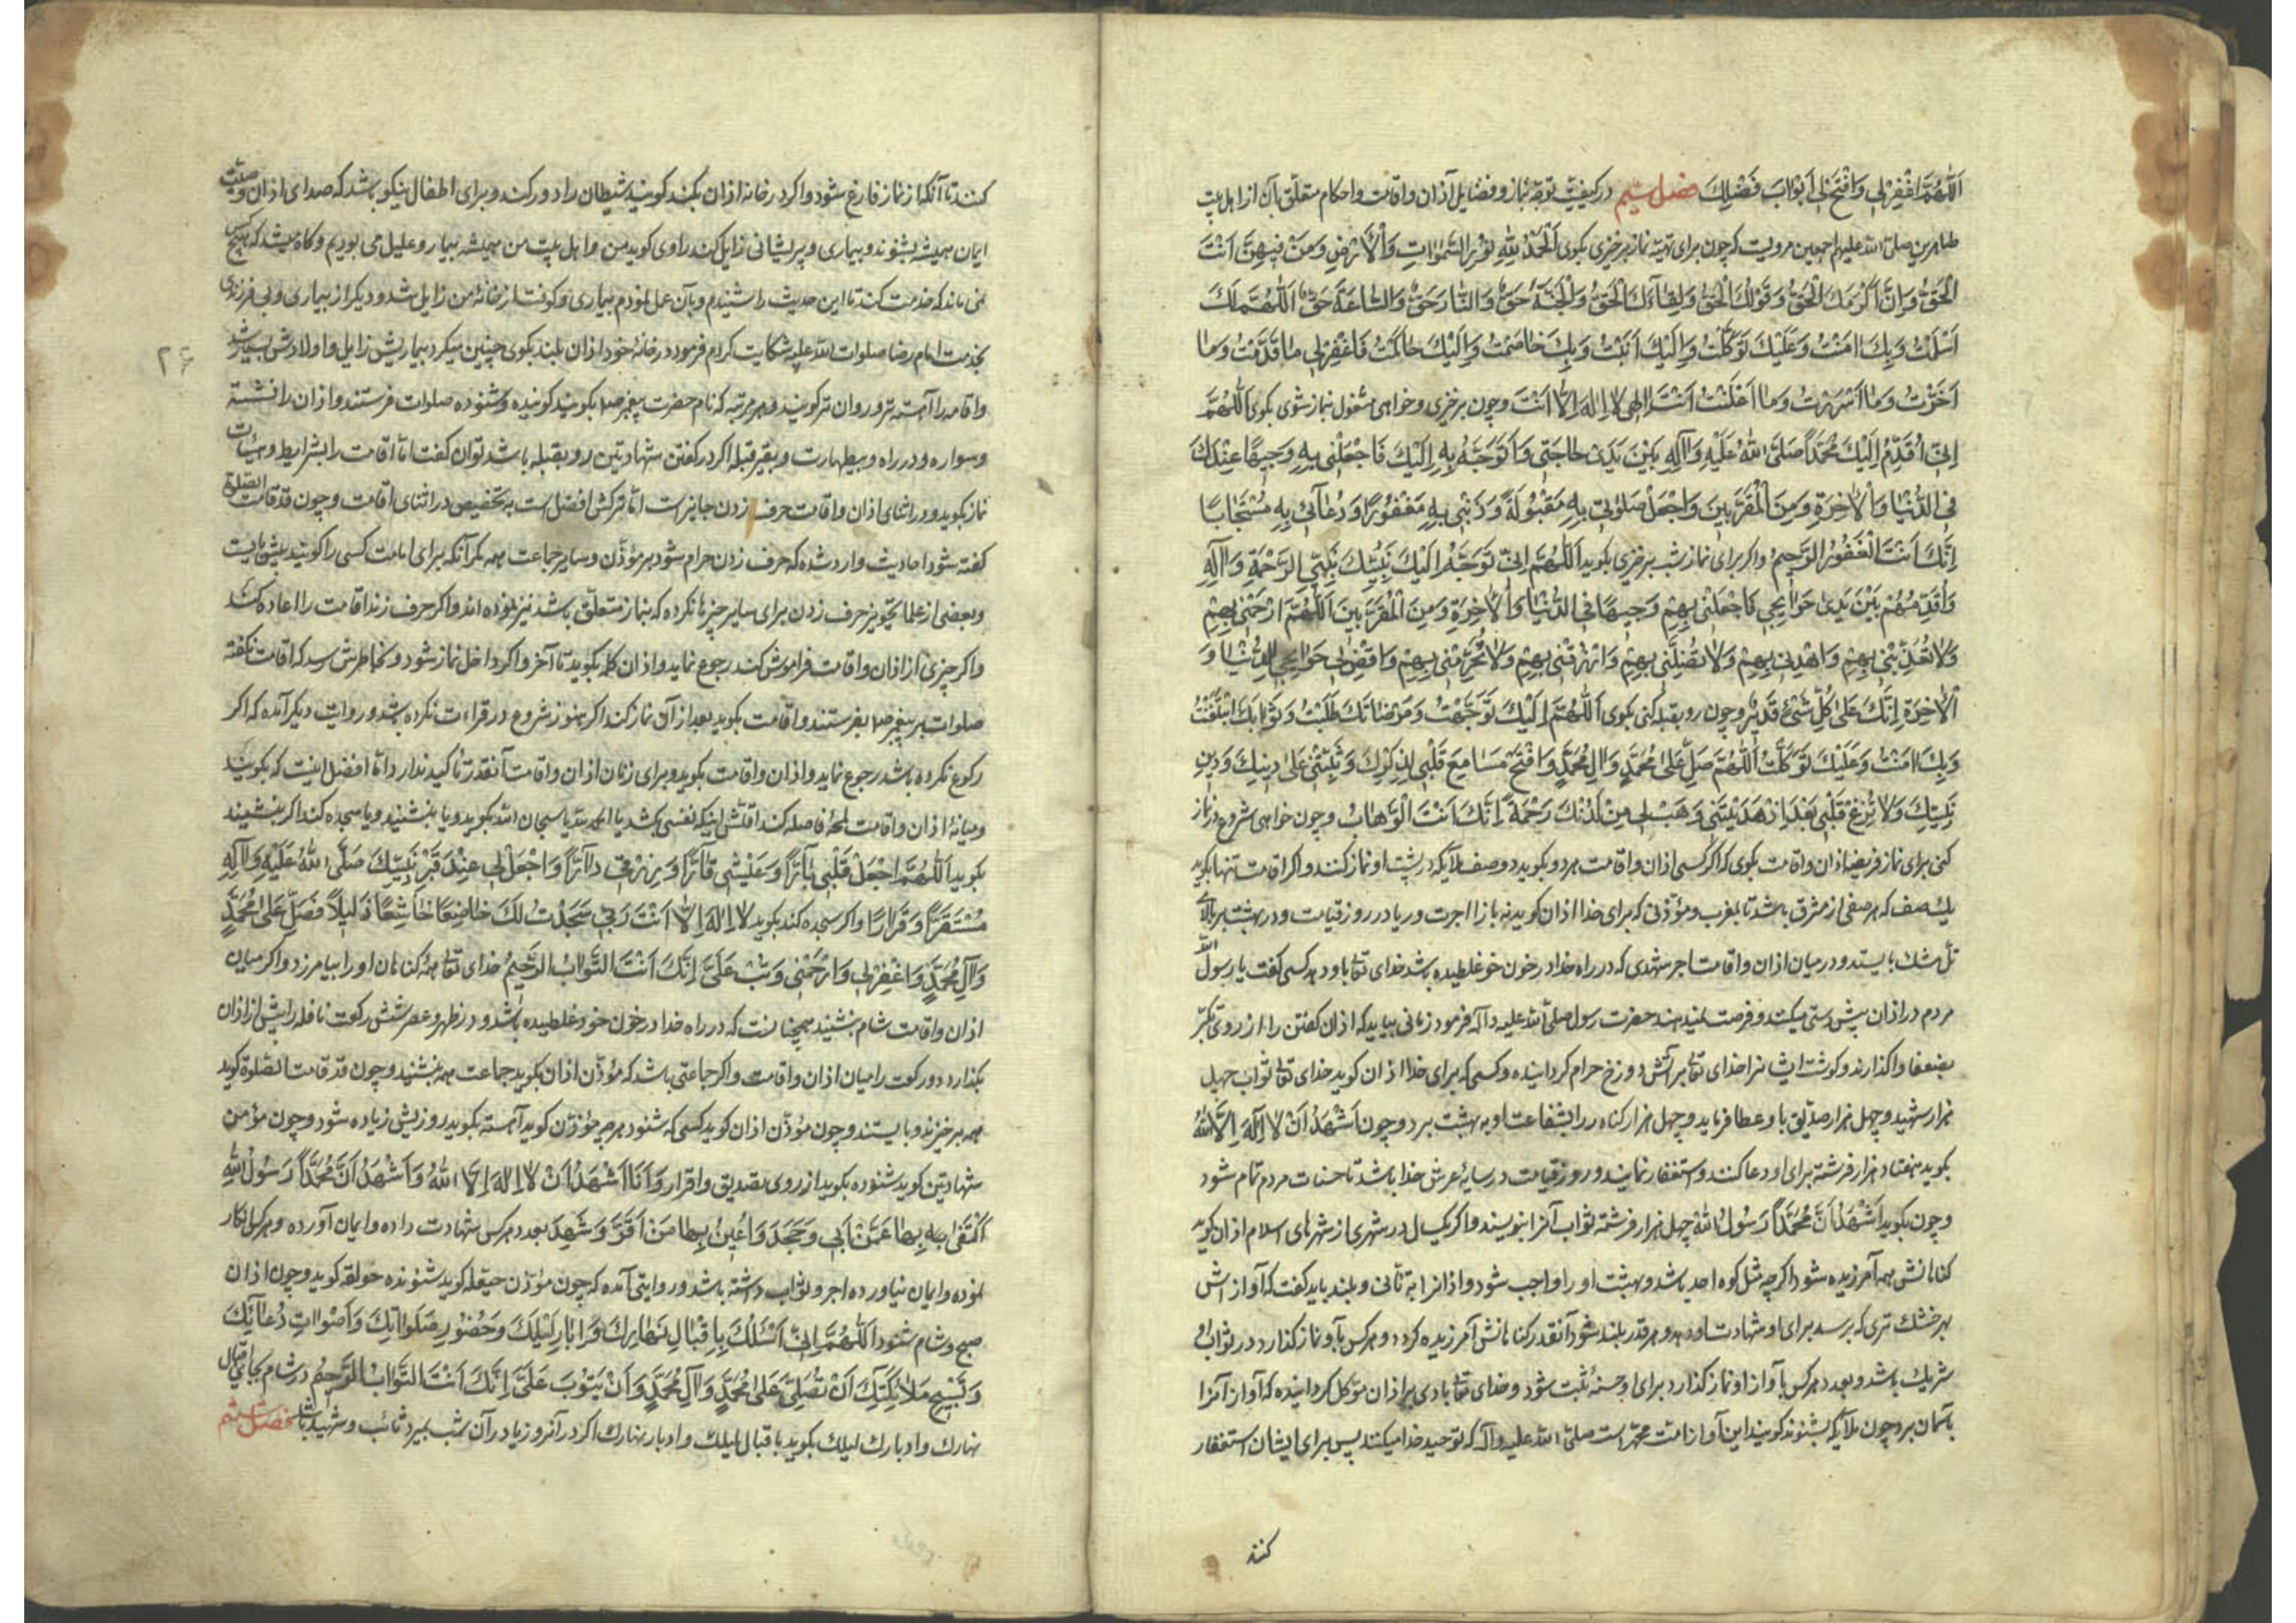 اَللّٰهُمَّ اغْفِرْلِي وَافْتَحْ لِي اَبْوَابَ فَضْلِكَ فصل در کیفیت توجه نماز و فضایل اذان و اقامت و احکام متعلق بآن از اهل بیت
طاهرین صلی الله علیهم اجمعین مرویست که چون برای تهیه نماز برخیزی بکوی اَلْحَمْدُ لِلّٰهِ نُوْرِ السَّمٰوَاتِ وَالْاَرْضِ وَمَنْ فِيهِنَّ اَنْتَ
الْحَقُّ وَقَوْلُكَ الْحَقُّ وَلِقَآءُكَ الْحَقُّ وَالْجَنَّةُ حَقٌّ وَالنَّارُ حَقٌّ وَالسَّاعَةُ حَقٌّ اَللّٰهُمَّ لَكَ
اَسْلَمْتُ وَبِكَ اٰمَنْتُ وَعَلَيْكَ تَوَكَّلْتُ وَاِلَيْكَ اَنَبْتُ وَبِكَ خَاصَمْتُ وَاِلَيْكَ حَاكَمْتُ فَاغْفِرْلِي مَا قَدَّمْتُ وَمَا
اَخَّرْتُ وَمَا اَسْرَرْتُ وَمَا اَعْلَنْتُ اَنْتَ اِلٰهِي لَا اِلٰهَ اِلَّا اَنْتَ وچون برخزی وخواهی مشغول نماز شوی بکوی اَللّٰهُمَّ
اِنِّي اُقَدِّمُ اِلَيْكَ مُحَمَّداً صَلَّى اللهُ عَلَيْهِ وَاٰلِهِ بَيْنَ يَدَىْ حَاجَتِي وَاَتَوَجَّهُ بِهِ اِلَيْكَ فَاجْعَلْنِي بِهِ وَجِيهًا عِنْدَكَ
فِي الدُّنْيَا وَالْاٰخِرَةِ وَمِنَ الْمُقَرَّبِينَ وَاجْعَلْ صَلٰوتِي بِهِ مَقْبُولَةً وَذَنْبِي بِهِ مَغْفُورًا وَدُعَآئِي بِهِ مُسْتَجَابًا
اِنَّكَ اَنْتَ الْغَفُورُ الرَّحِيمُ واکر برای نماز شب برخزی بکوید اَللّٰهُمَّ اِنِّي اَتَوَجَّهُ اِلَيْكَ بِنَبِيِّكَ نَبِيِّ الرَّحْمَةِ وَاٰلِهِ
وَاُقَدِّمُهُمْ بَيْنَ يَدَىْ حَوَائِجِي فَاجْعَلْنِي بِهِمْ وَجِيهًا فِي الدُّنْيَا وَالْاٰخِرَةِ وَمِنَ الْمُقَرَّبِينَ اَللّٰهُمَّ ارْحَمْنِي بِهِمْ
وَلَا تُعَذِّبْنِي بِهِمْ وَاهْدِنِي بِهِمْ وَلَا تُضِلَّنِي بِهِمْ وَارْزُقْنِي بِهِمْ وَلَا تَحْرِمْنِي بِهِمْ وَاقْضِ لِي حَوَائِجِي لِلدُّنْيَا وَ
الْاٰخِرَةِ اِنَّكَ عَلٰى كُلِّ شَيْءٍ قَدِيرٌ وچون رو بقبله کنی بکوی اَللّٰهُمَّ اِلَيْكَ تَوَجَّهْتُ وَمَرْضَاتَكَ طَلَبْتُ وَثَوَابَكَ ابْتَغَيْتُ
وَبِكَ اٰمَنْتُ وَعَلَيْكَ تَوَكَّلْتُ اَللّٰهُمَّ صَلِّ عَلٰى مُحَمَّدٍ وَاٰلِ مُحَمَّدٍ وَافْتَحْ مَسَامِعَ قَلْبِي لِذِكْرِكَ وَثَبِّتْنِي عَلٰى دِينِكَ وَدِينِ
نَبِيِّكَ وَلَا تُزِغْ قَلْبِي بَعْدَ اِذْ هَدَيْتَنِي وَهَبْ لِي مِنْ لَدُنْكَ رَحْمَةً اِنَّكَ اَنْتَ الْوَهَّابُ وچون خواهی شروع در نماز
کنی برای نماز فریضه اذان واقامت بکوی که اکر کسی اذان واقامت هر دو بکوید دو صف ملائکه در پشت او نماز کنند واکر اقامت تنها بکوید
یک صف که هر صفی از مشرق باشد تا بمغرب ومؤذنی که برای خدا اذان کوید نه باز اجرت و ریا در روز قیامت ودر بهشت بر بالای
تل مشک بایستد ودر میان اذان واقامت اجر شهیدی که در راه خدا در خون خود غلطیده باشد خدای تعالی باو دهد کسی کفت یا رسول الله
مردم در اذان پیش دستی میکنند وفرصت نمیدهند حضرت رسول صلی الله علیه وآله فرمود زمانی بیاید که اذان کفتن را از روی تکبر
بضعفا واکذارند وکوشت ایشانرا خدای تعالی بر آتش دوزخ حرام کردانیده وکسی که برای خدا اذان کوید خدای تعالی ثواب چهل
هزار شهید وچهل هزار صدّیق باو عطا فرماید وچهل هزار کناه را بشفاعت او به بهشت برد وچون اَشْهَدُ اَنْ لَا اِلٰهَ اِلَّا اللهُ
بکوید هفتاد هزار فرشته برای او دعا کنند واستغفار نمایند وروز قیامت در سایهٔ عرش خدا باشد تا حسنات مردم تمام شود
وچون بکوید اَشْهَدُ اَنَّ مُحَمَّداً رَسُولُ اللهِ چهل هزار فرشته ثواب آنرا بنویسند واکر یکسال در شهری از شهرهای اسلام اذان کوید
کناهانش همه آمرزیده شود اکر چه مثل کوه احد باشد وبهشت او را واجب شود واذانرا به تأنی وبلند باید کفت که آوازش
بهر خشک وتری که برسد برای او شهادت دهد وهر قدر بلند شود آنقدر کناهانش آمرزیده کردد وهر کس باو نماز کذارد در ثواب او
شریک باشد وبعدد هر کس باواز او نماز کذارد برای او حسنه ثبت شود وخدای تعالی بادی بر اذان موکل کردانیده که آواز آنرا
بآسمان برد چون ملائکه بشنوند کویند این آواز امت محمد است صلی الله علیه وآله که توحید خدا میکنند پس برای ایشان استغفار
کنند
کنند تا آنکه از نماز فارغ شود واکر در خانه اذان بکند کویند شیطان را دور کند وبرای اطفال نیکو باشد که صدای اذان
ایمان همیشه بشنوند وبیماری وپریشانی زایل کند راوی کوید من واهل بیت من همیشه بیمار وعلیل می بودیم وکاه میشد که هیچکس
نمی ماند که خدمت کند تا این حدیث را شنیدم وبآن عمل نمودم بیماری وکوفت از خانهٔ من زایل شد ودیکر از بیماری وبی فرزندی
بخدمت امام رضا صلوات الله علیه شکایت کردم فرمود در خانهٔ خود اذان بلند بکوی چنین میکرد بیماریش زایل واولادش بسیار شد
۲۶
واقامه را آهسته تر وروان تر کویند وهر مرتبه که نام حضرت پیغمبر بکویند کوینده وشنونده صلوات فرستند واذان را نشسته
وسواره ودر راه وبیطهارت وبغیر قبله اکر در کفتن شهادتین رو بقبله باشد توان کفت اما اقامت را بشرایط وهیئات
نماز بکوید ودر اثنای اذان واقامت حرف زدن جایز است اما ترکش افضل است بتخصیص در اثنای اقامت وچون قد قامت الصلوة
کفته شود احادیث وارد شده که حرف زدن حرام شود بر مؤذن وسایر جماعت همه مکر آنکه برای امامت کسی را کویند پیش بایست
وبعضی از علما تجویز حرف زدن برای سایر چیزها نکرده که بنماز متعلق باشد نیز نموده اند واکر حرف زند اقامت را اعاده کند
واکر چیزی از اذان واقامت فراموش کند رجوع نماید واذان کله بکوید تا آخر واکر داخل نماز شود وبخاطرش رسد که اقامت نکفته
صلوات بر پیغمبر بفرستند واقامت بکوید بعد از آن نماز کند اکر هنوز شروع در قراءت نکرده باشد ودر روایت دیکر آمده که اکر
رکوع نکرده باشد رجوع نماید واذان واقامت بکوید وبرای زنان اذان واقامت آنقدر تأکید ندارد اما افضل اینست که بکویند
ومیانهٔ اذان واقامت لمحهٔ فاصله کند اقلش اینکه نفسی بکشد یا الحمد لله یا سبحان الله بکوید ویا بنشیند ویا سجده کند اکر بنشیند
بکوید اَللّٰهُمَّ اجْعَلْ قَلْبِي بَآرًّا وَعَيْشِي قَآرًّا وَرِزْقِي دَآرًّا وَاجْعَلْ لِي عِنْدَ قَبْرِ نَبِيِّكَ صَلَّى اللهُ عَلَيْهِ وَاٰلِهِ
مُسْتَقَرًّا وَقَرَارًا واکر سجده کند بکوید لَا اِلٰهَ اِلَّا اَنْتَ رَبِّي سَجَدْتُ لَكَ خَاضِعًا خَاشِعًا ذَلِيلًا فَصَلِّ عَلٰى مُحَمَّدٍ
وَآلِ مُحَمَّدٍ وَاغْفِرْلِي وَارْحَمْنِي وَتُبْ عَلَيَّ اِنَّكَ اَنْتَ التَّوَّابُ الرَّحِيمُ خدای تعالی همهٔ کناهان او را بیامرزد واکر میان
اذان واقامت شام بنشیند همچنانست که در راه خدا در خون خود غلطیده باشد ودر ظهر وعصر شش رکعت نافله را پیش از اذان
بکذارد دو رکعت را میان اذان واقامت واکر جماعتی باشد که مؤذن اذان بکوید جماعت همه بنشیند وچون قد قامت الصلوة کوید
همه برخیزند وبایستند وچون مؤذن اذان کوید کسی که شنود هر چه مؤذن کوید آهسته بکوید روزیش زیاده شود وچون مؤمن
شهادتین کوید شنونده بکوید از روی تصدیق واقرار وَاَنَا اَشْهَدُ اَنْ لَا اِلٰهَ اِلَّا اللهُ وَاَشْهَدُ اَنَّ مُحَمَّداً رَسُولُ اللهِ
اَكْتَفِي بِهَا عَمَّنْ اَبٰى وَجَحَدَ وَاُعِينُ بِهَا مَنْ اَقَرَّ وَشَهِدَ بعدد هر کس شهادت داده وایمان آورده وهر کس انکار
نموده وایمان نیاورده اجر وثواب داشته باشد ودر روایتی آمده که چون مؤذن حیعله کوید شنونده حولقه کوید وچون اذان
صبح وشام شنود اَللّٰهُمَّ اِنِّي اَسْئَلُكَ بِاِقْبَالِ نَهَارِكَ وَاِدْبَارِ لَيْلِكَ وَحُضُورِ صَلَوَاتِكَ وَاَصْوَاتِ دُعَآئِكَ
وَتَسْبِيحِ مَلَائِكَتِكَ اَنْ تُصَلِّيَ عَلٰى مُحَمَّدٍ وَآلِ مُحَمَّدٍ وَاَنْ تَتُوْبَ عَلَيَّ اِنَّكَ اَنْتَ التَّوَّابُ الرَّحِيمُ ودر شام بجای اقبال
نهارک وادبار لیلک بکوید باقبال لیلک وادبار نهارک اکر در آنروز یا در آن شب بمیرد تائب وشهید باشد فصل ششم